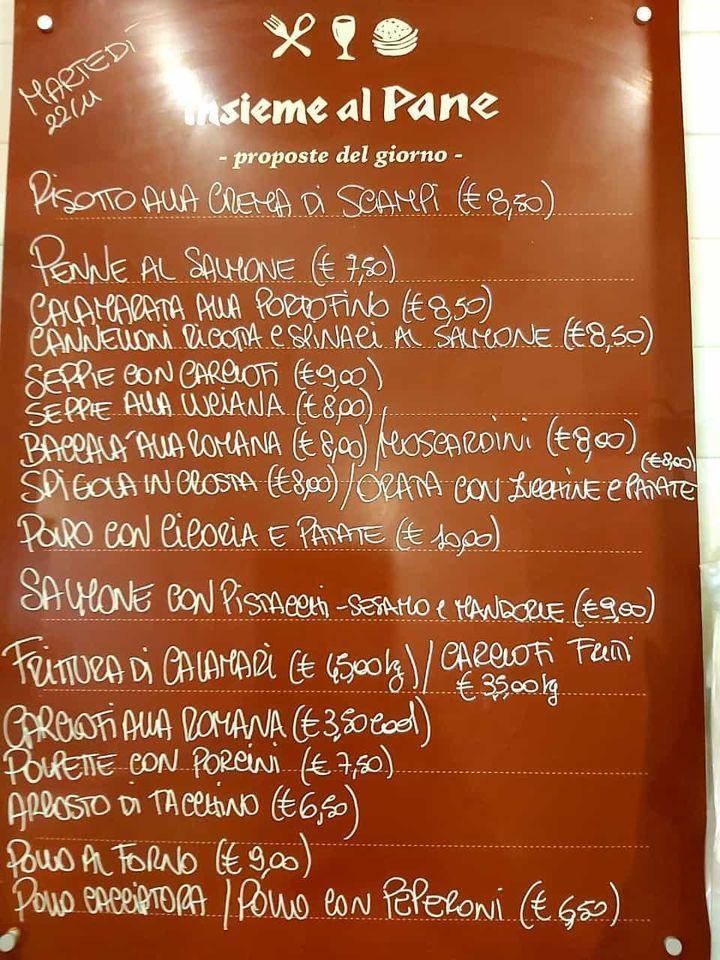 MARTEDÌ
22/11
insieme al Pane
- proposte del giorno -
RISOTTO ALLA CREMA DI SCAMPI (€ 8,50)
PENNE AL SALMONE (€ 7,50)
CALAMARATA ALLA PORTOFINO (€8,50)
CANNELLONI RICOTTA e SPINACI AL SALMONE (€8,50)
SEPPIE CON CARCIOFI (€9,00)
SEPPIE ALLA LUCIANA (€8,00)
BACCALA' ALLA ROMANA (€8,00) / MOSCARDINI (€8,00)
(€8,00)
SPIGOLA IN CROSTA (€8,00) / ORATA CON ZUCCHINE e PATATE
POLPO CON CICORIA E PATATE (€ 10,00)
SALMONE CON PISTACCHI - SESAMO e MANDORLE (€9,00)
FRITTURA DI CALAMARI (€ 45,00 kg) / CARCIOFI FRITTI
€ 35,00 kg
CARCIOFI ALLA ROMANA (€3,50 cad)
POLPETTE CON PORCINI (€ 7,50)
ARROSTO DI TACCHINO (€6,50)
POLLO AL FORNO (€ 9,00)
POLLO CACCIATORA / POLLO CON PEPERONI (€ 6,50)